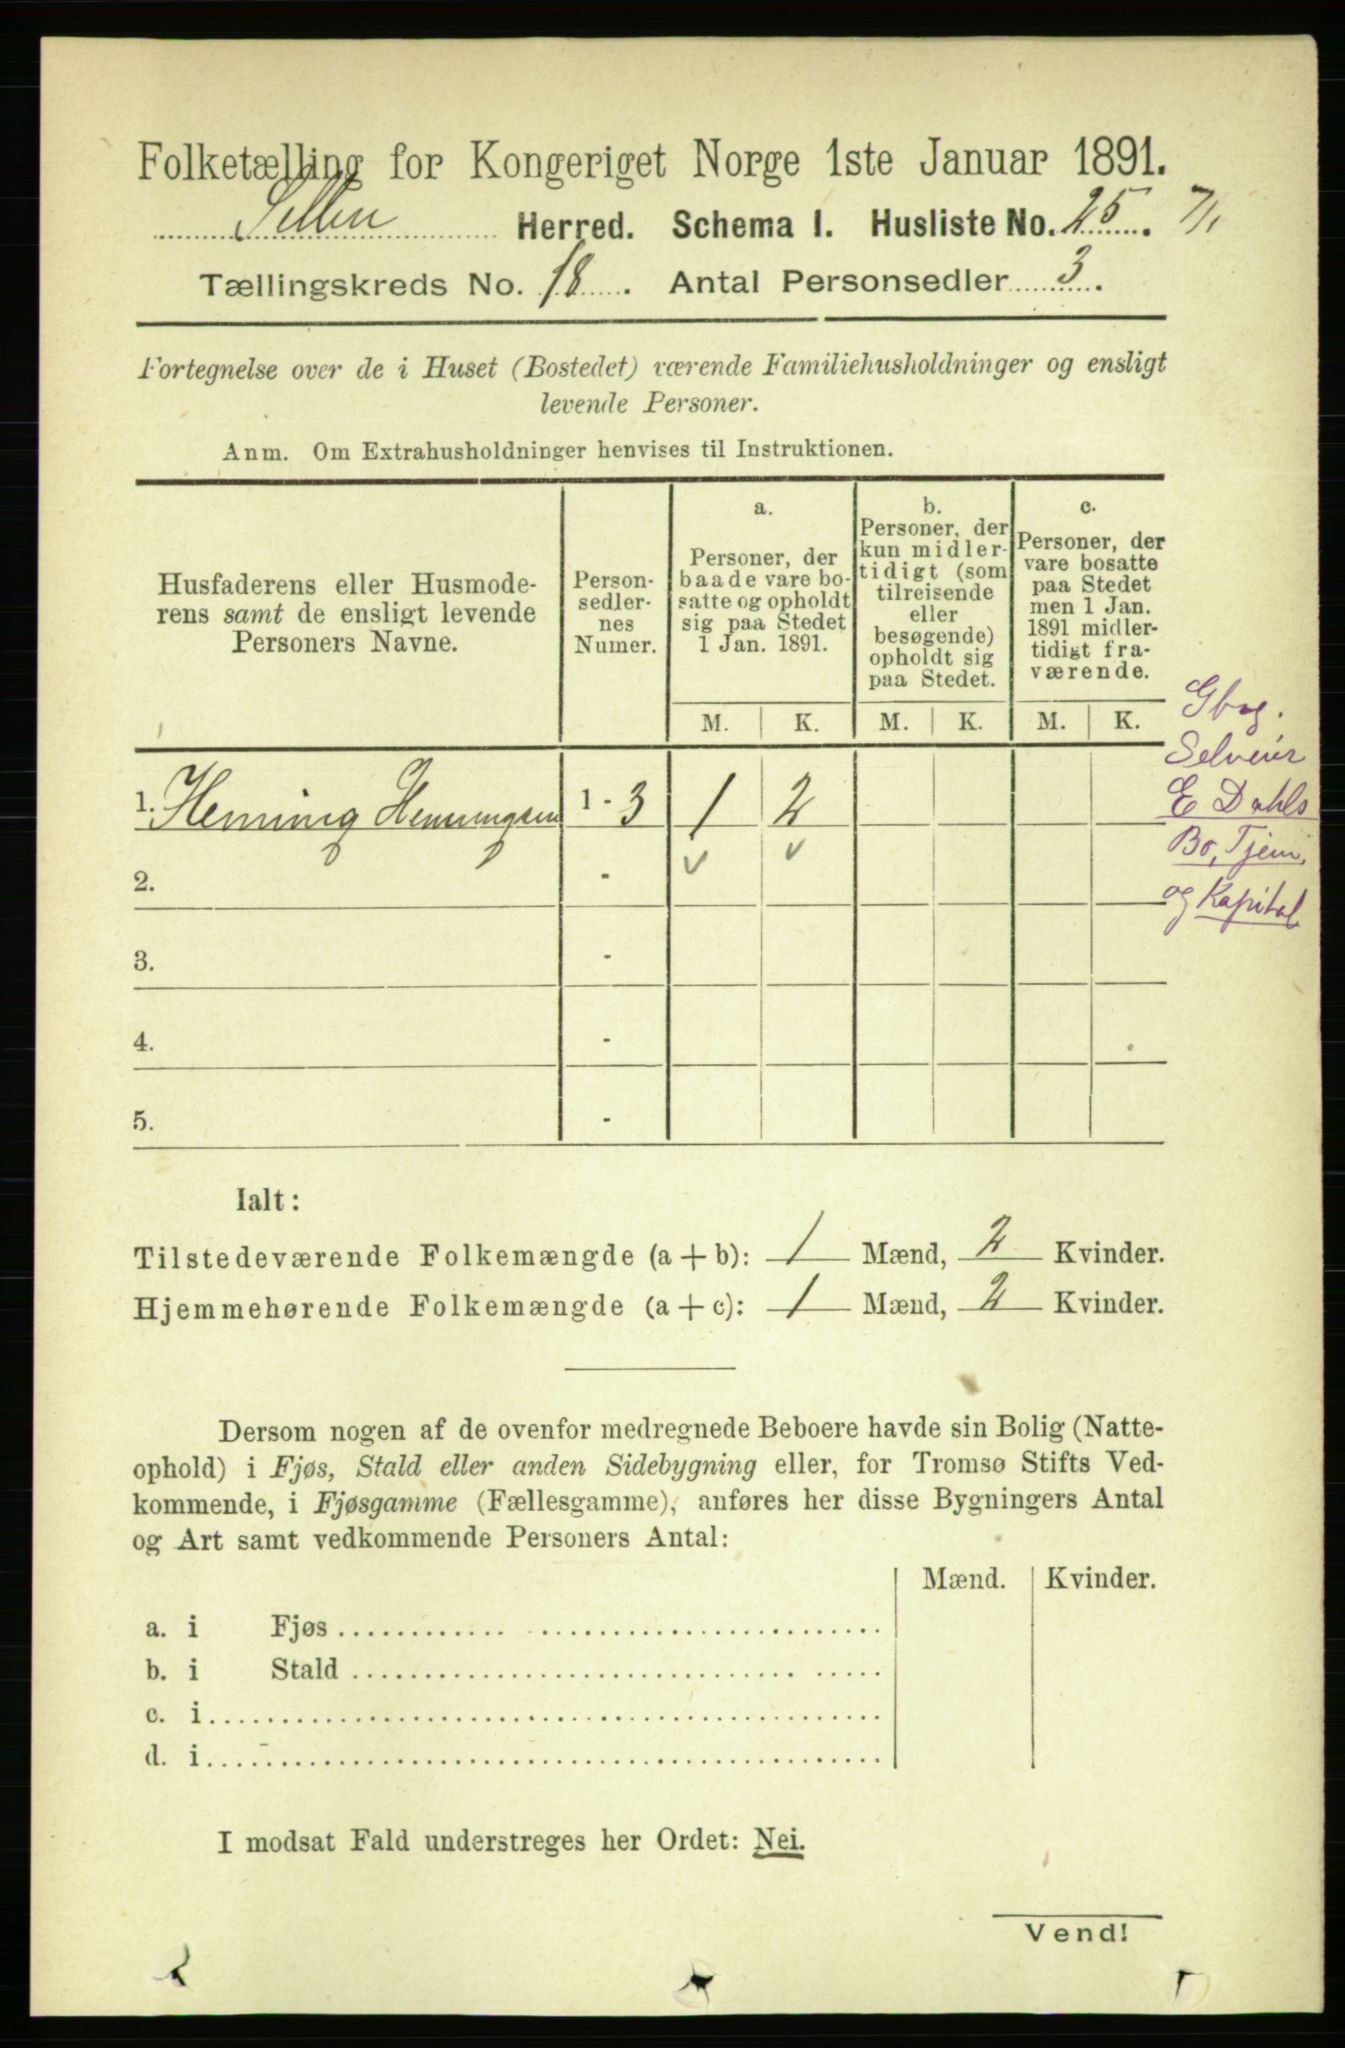 Folketælling for Kongeriget Norge 1ste Januar 1891.
Herred. Schema I. Husliste No. 25.
Tællingskreds No. 18. Antal Personsedler 3.
Fortegnelse over de i Huset (Bostedet) værende Familiehusholdninger og ensligt
levende Personer.
Anm. Om Extrahusholdninger henvises til Instruktionen.
Husfaderens eller Husmode-
rens samt de ensligt levende
Personers Navne.
Person-
sedler-
nes
Numer.
a.
Personer, der
baade vare bo-
satte og opholdt
sig paa Stedet
1 Jan. 1891.
b.
Personer, der
kun midler-
tidigt (som
tilreisende
eller
besøgende)
opholdt sig
paa Stedet.
c.
Personer, der
vare bosatte
paa Stedet
men 1 Jan.
1891 midler-
tidigt fra-
værende.
M. K. M. K. M. K.
1. Heming Hemmingsen 1 - 3 1 2
2. -
3. -
4. -
5. -
Gbrg.
Selveier
E Dahls
Bo, Tjen.
og Kapital
Ialt:
Tilstedeværende Folkemængde (a + b): 1 Mænd, 2 Kvinder.
Hjemmehørende Folkemængde (a + c): 1 Mænd, 2 Kvinder.
Dersom nogen af de ovenfor medregnede Beboere havde sin Bolig (Natte-
ophold) i Fjøs, Stald eller anden Sidebygning eller, for Tromsø Stifts Ved-
kommende, i Fjøsgamme (Fællesgamme), anføres her disse Bygningers Antal
og Art samt vedkommende Personers Antal:
Mænd. Kvinder.
a. i Fjøs
b. i Stald
c. i
d. i
I modsat Fald understreges her Ordet: Nei.
Vend!